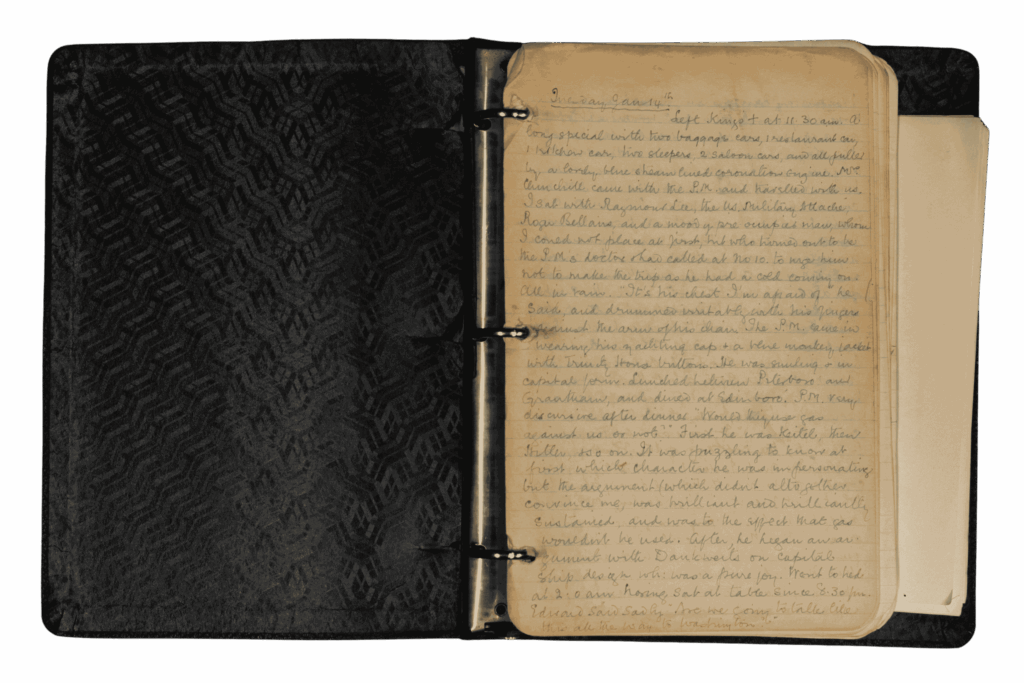 Tuesday Jan 14th.
Left Kings + at 11.30 am. A
long special with two baggage cars, 1 restaurant car,
1 kitchen car, two sleepers, 2 saloon cars, and all pulled
by a lovely blue stream lined coronation engine. Mrs
Churchill came with the P.M. and travelled with us.
I sat with Raymond Lee, the US. Military Attaché,
Roger Bellairs, and a moody pre occupied man, whom
I could not place at first, but who turned out to be
the P.M's doctor & had called at No 10. to urge him
not to make the trip as he had a cold coming on.
All in vain. "It's his chest I'm afraid of" he
said, and drummed irritably with his fingers
against the arm of his chair. The P.M. came in
wearing his yachting cap + a blue monkey jacket
with Trinity House buttons. He was smiling & in
capital form. Lunched between Peterboro' and
Grantham, and dined at Edinboro'. P.M. very
discursive after dinner "Would they use gas
against us or not?" First he was Keitel, then
Hitler, & so on. It was puzzling to know at
first which character he was impersonating
but the argument (which didn't altogether
convince me) was brilliant and brilliantly
sustained, and was to the effect that gas
wouldn't be used. After, he began an ar-
gument with Dankwerts on capital
ship design wh: was a pure joy. Went to bed
at 2.0 am having sat at table since 8.30 pm.
Edward said sadly "Are we going to
all the way to Washington"